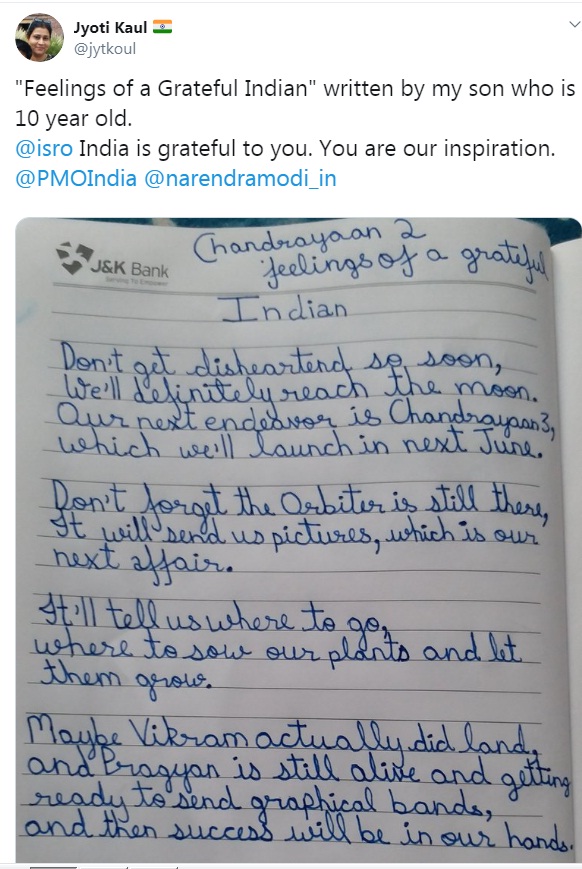 Jyoti Kaul 🇮🇳
@jytkoul
"Feelings of a Grateful Indian" written by my son who is
10 year old.
@isro India is grateful to you. You are our inspiration.
@PMOIndia @narendramodi_in
Chandrayaan 2
J&K Bank
Serving To Empower
feelings of a grateful
Indian
Don't get disheartend so soon,
We'll definitely reach the moon.
Our next endeavor is Chandrayaan 3,
which we'll launch in next June.
Don't forget the Orbiter is still there,
It will send us pictures, which is our
next affair.
It'll tell us where to go,
where to sow our plants and let
them grow.
Maybe Vikram actually did land,
and Pragyan is still alive and getting
ready to send graphical bands,
and then success will be in our hands.